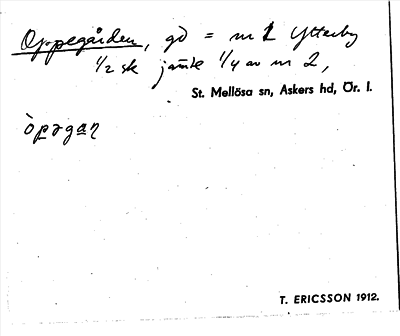 Oppegården, gd = nr 1 Ytterby
1/2 sk jämte 1/4 av nr 2,
St. Mellösa sn, Askers hd, Ör. l.
òpəgaɳ
T. ERICSSON 1912.